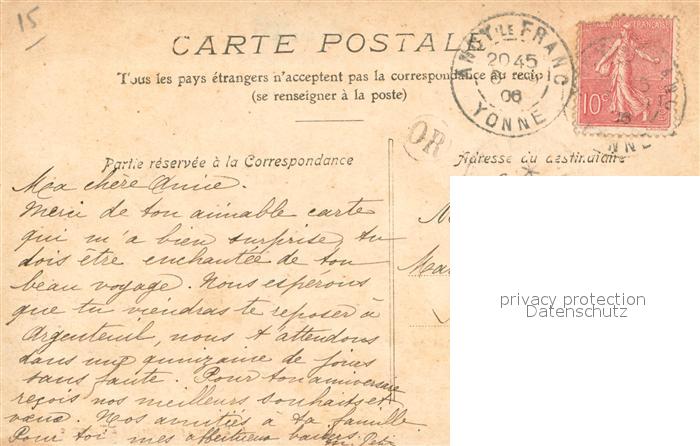 15
CARTE POSTALE
Tous les pays étrangers n'acceptent pas la correspondance au recto
(se renseigner à la poste)
ANCY-LE-FRANC
20 45
06
YONNE
FRANÇAISE
10c
OR
Partie réservée à la Correspondance
Adresse du destinataire
Ma chère Annie.
Merci de ton aimable carte
qui m'a bien surprise, tu
dois être enchantée de ton
beau voyage. Nous espérons
que tu viendras te reposer à
Argenteuil, nous t attendons
dans une quinzaine de jours
sans faute. Pour ton anniversaire
reçois nos meilleurs souhaits et
vœux. Nos amitiés à ta famille
Pour toi mes affectueux baisers
privacy protection
Datenschutz